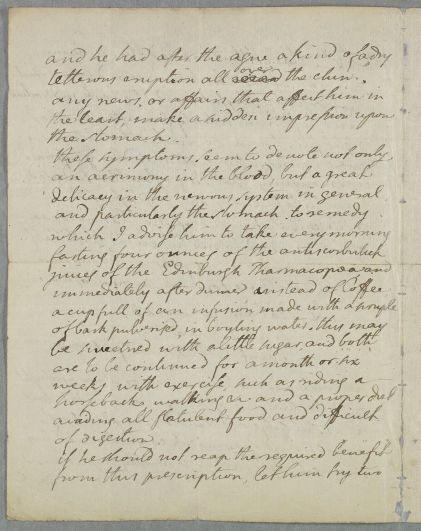 and he had after the ague a kind of a dry
tetterous eruption all over the chin.
any news, or affairs that affect him in
the least, make a sudden impression upon
the stomach.
these symptoms, seem to denote not only
an acrimony in the blood, but a great
delicacy in the nervous system in general
and particularly the stomach. to remedy
which I advise him to take every morning
fasting four ounces of the antiscorbutick
juices of the Edinburgh Pharmacopœa and
immediately after dinner instead of Coffee
a cup full of an infusion made with a scruple
of bark pulverised, in boyling water. this may
be sweetned with a little sugar and both
are to be continued for a month or six
weeks with exercise, such as riding a
horseback walking &c and a proper diet
avoiding all flatulent food and difficult
of digestion
if he should not reap the required benefit
from this prescription, let him try two